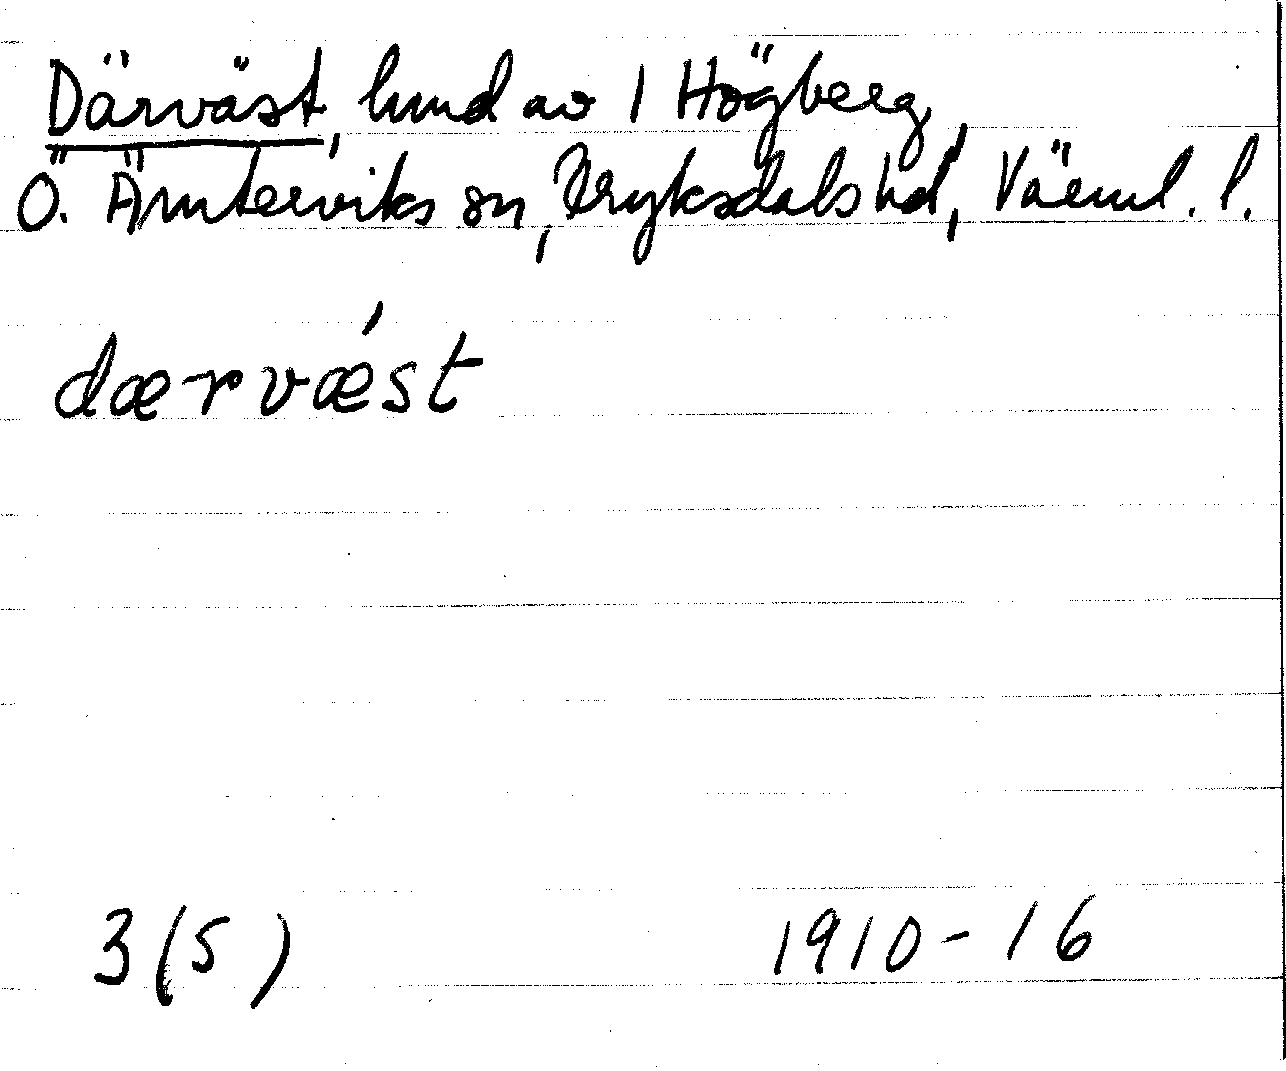 Därväst, hmd av 1 Högberg,
Ö. Ämterviks sn, Fryksdals hd, Värml. l.
dærvǽst
3(5) 1910-16